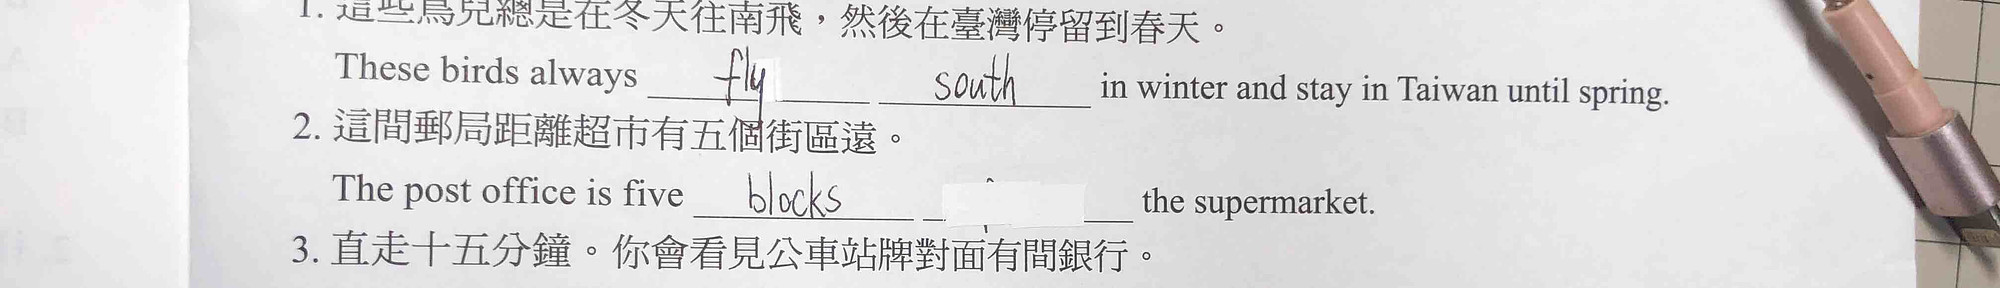 1. 這些鳥兒總是在冬天往南飛，然後在臺灣停留到春天。
These birds always fly south in winter and stay in Taiwan until spring.
2. 這間郵局距離超市有五個街區遠。
The post office is five blocks the supermarket.
3. 直走十五分鐘。你會看見公車站牌對面有間銀行。